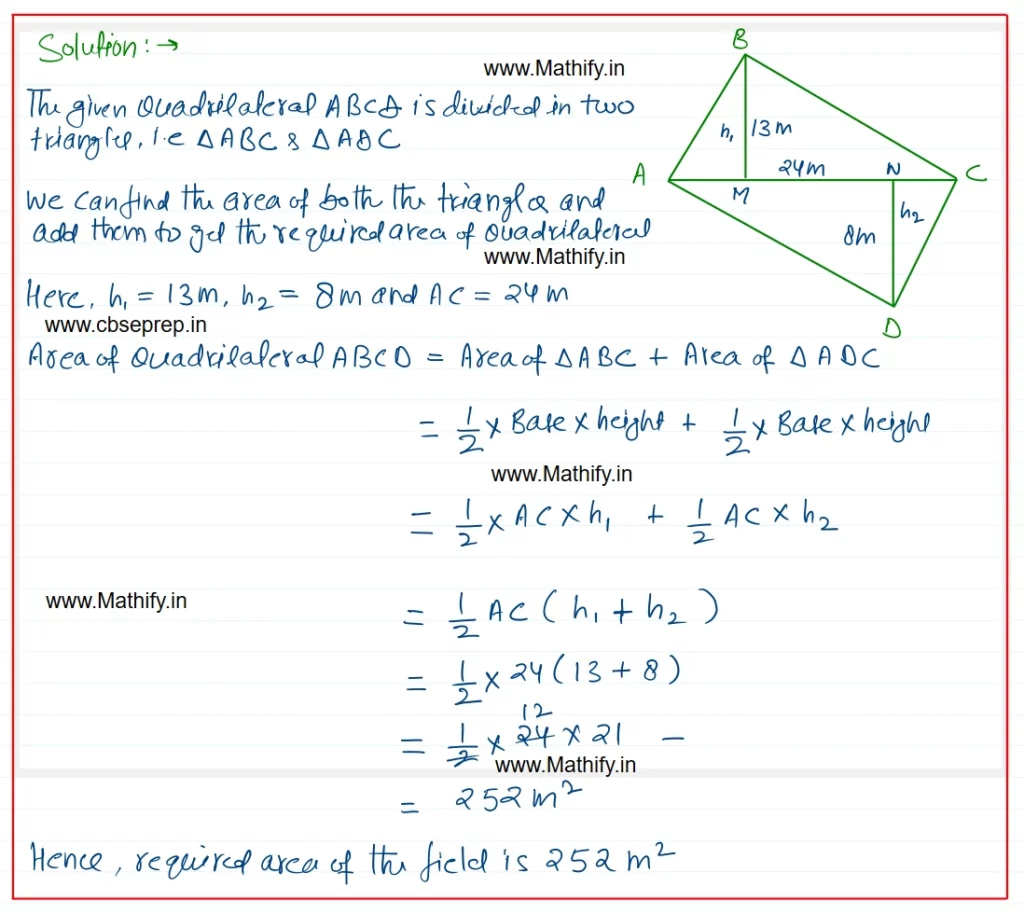 Solution :→
B
www.Mathify.in
The given Quadrilateral ABCD is divided in two
triangles, i.e △ABC & △ADC
h₁ 13m
24m N
A M C
h₂
8m
D
We can find the area of both the triangles and
add them to get the required area of Quadrilateral
www.Mathify.in
Here, h₁ = 13m, h₂ = 8m and AC = 24m
www.cbseprep.in
Area of Quadrilateral ABCD = Area of △ABC + Area of △ADC
= 1/2 × Base × height + 1/2 × Base × height
www.Mathify.in
= 1/2 × AC × h₁ + 1/2 AC × h₂
www.Mathify.in
= 1/2 AC (h₁ + h₂)
= 1/2 × 24 (13 + 8)
12
= 1/2 × 24 × 21 –
www.Mathify.in
= 252 m²
Hence, required area of the field is 252 m²